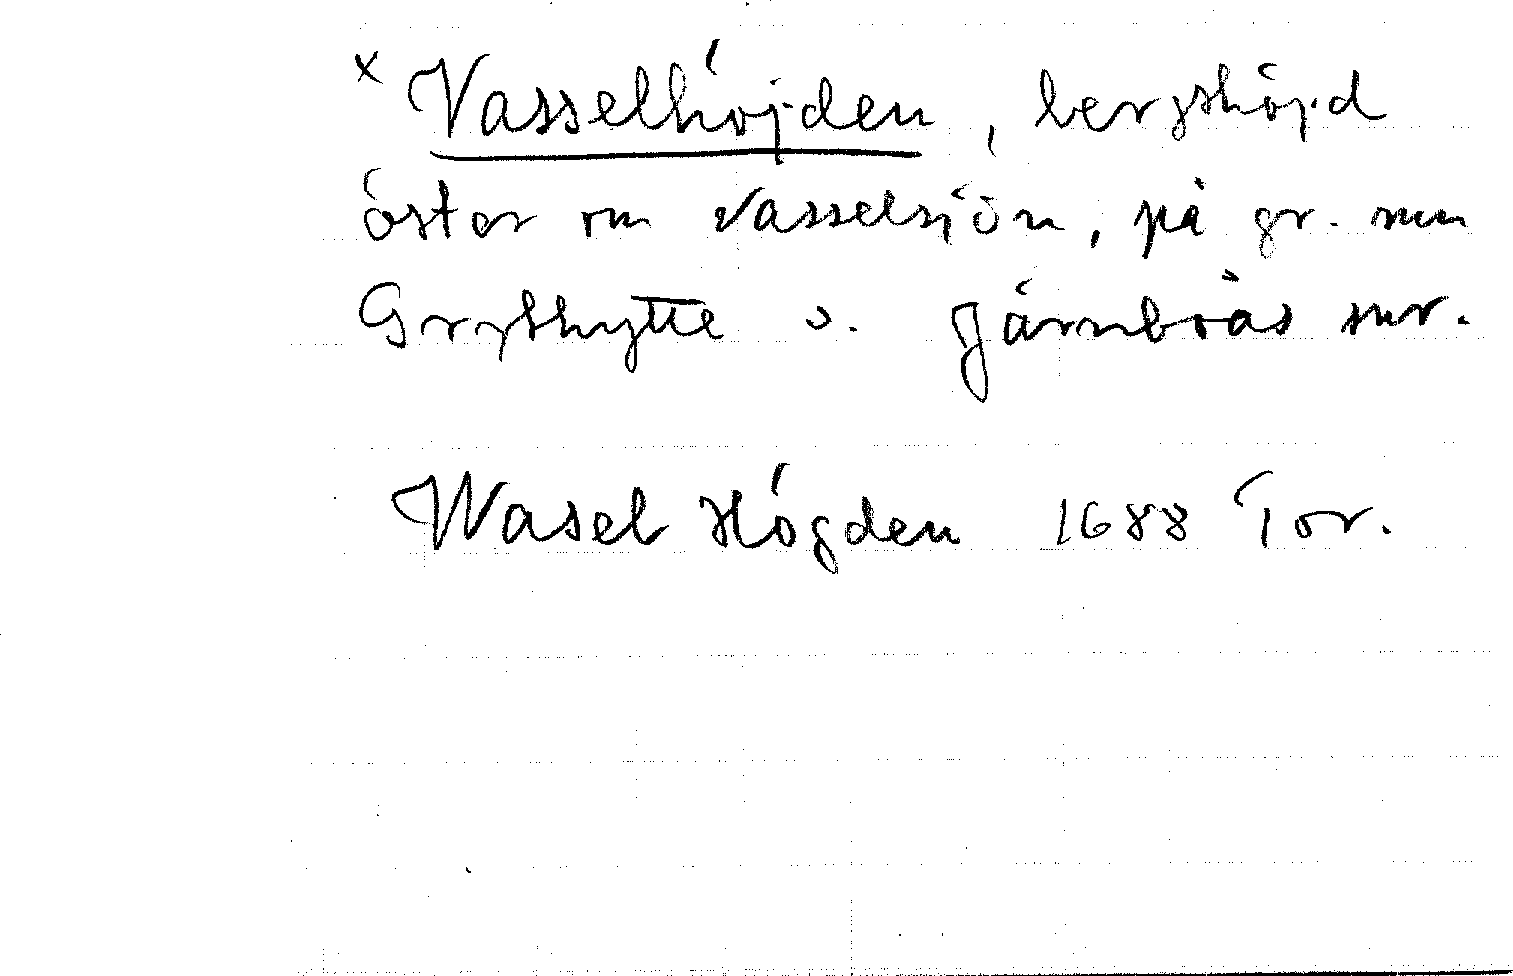 x Vasselhöjden, bergshöjd
öster om Vasselsjön, på gr. mm
Grythytte o. Järnboås snr.
Wasel Högden 1688 Tor.